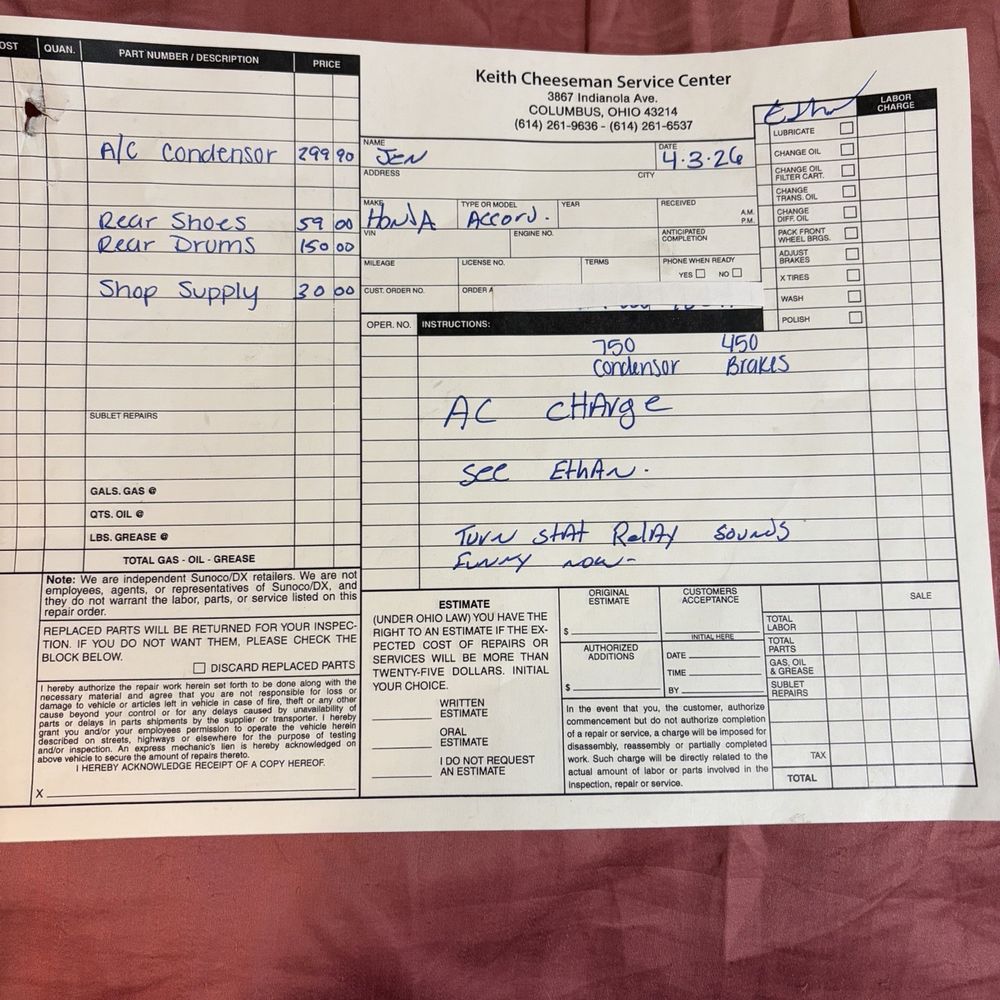 OST QUAN. PART NUMBER / DESCRIPTION PRICE
A/C Condensor 299 90
Rear Shoes 59 00
Rear Drums 150 00
Shop Supply 30 00
SUBLET REPAIRS
GALS. GAS @
QTS. OIL @
LBS. GREASE @
TOTAL GAS - OIL - GREASE
Note: We are independent Sunoco/DX retailers. We are not
employees, agents, or representatives of Sunoco/DX, and
they do not warrant the labor, parts, or service listed on this
repair order.
REPLACED PARTS WILL BE RETURNED FOR YOUR INSPEC-
TION. IF YOU DO NOT WANT THEM, PLEASE CHECK THE
BLOCK BELOW.
DISCARD REPLACED PARTS
I hereby authorize the repair work herein set forth to be done along with the
necessary material and agree that you are not responsible for loss or
damage to vehicle or articles left in vehicle in case of fire, theft or any other
cause beyond your control or for any delays caused by unavailability of
parts or delays in parts shipments by the supplier or transporter. I hereby
grant you and/or your employees permission to operate the vehicle herein
described on streets, highways or elsewhere for the purpose of testing
and/or inspection. An express mechanic's lien is hereby acknowledged on
above vehicle to secure the amount of repairs thereto.
I HEREBY ACKNOWLEDGE RECEIPT OF A COPY HEREOF.
X
Keith Cheeseman Service Center
3867 Indianola Ave.
COLUMBUS, OHIO 43214
(614) 261-9636 - (614) 261-6537
NAME JEN DATE 4.3.26
ADDRESS CITY
MAKE HONDA TYPE OR MODEL Accord. YEAR RECEIVED A.M. P.M.
VIN ENGINE NO. ANTICIPATED COMPLETION
MILEAGE LICENSE NO. TERMS PHONE WHEN READY
YES NO
CUST. ORDER NO. ORDER A
OPER. NO. INSTRUCTIONS:
750 450
Condensor Brakes
AC CHArge
See EthAn.
Turn stAt RelAy sounds
Funny now-
Ethan LABOR CHARGE
LUBRICATE
CHANGE OIL
CHANGE OIL FILTER CART.
CHANGE TRANS. OIL
CHANGE DIFF. OIL
PACK FRONT WHEEL BRGS.
ADJUST BRAKES
X TIRES
WASH
POLISH
ESTIMATE
(UNDER OHIO LAW) YOU HAVE THE
RIGHT TO AN ESTIMATE IF THE EX-
PECTED COST OF REPAIRS OR
SERVICES WILL BE MORE THAN
TWENTY-FIVE DOLLARS. INITIAL
YOUR CHOICE.
WRITTEN ESTIMATE
ORAL ESTIMATE
I DO NOT REQUEST AN ESTIMATE
ORIGINAL ESTIMATE
$
AUTHORIZED ADDITIONS
$
CUSTOMERS ACCEPTANCE
INITIAL HERE
DATE
TIME
BY
In the event that you, the customer, authorize
commencement but do not authorize completion
of a repair or service, a charge will be imposed for
disassembly, reassembly or partially completed
work. Such charge will be directly related to the
actual amount of labor or parts involved in the
inspection, repair or service.
SALE
TOTAL LABOR
TOTAL PARTS
GAS, OIL & GREASE
SUBLET REPAIRS
TAX
TOTAL